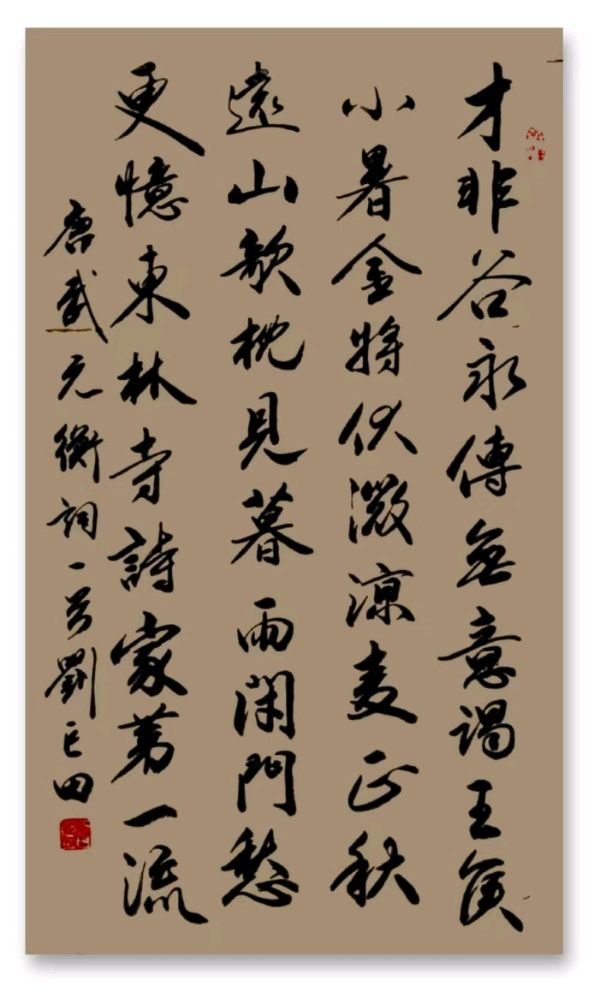 才非谷永傳無意謁王侯
小暑金將伏微涼麦正秋
遠山欹枕見暮雨閉門愁
更憶東林寺詩家第一流
唐武元衡詞一首劉田